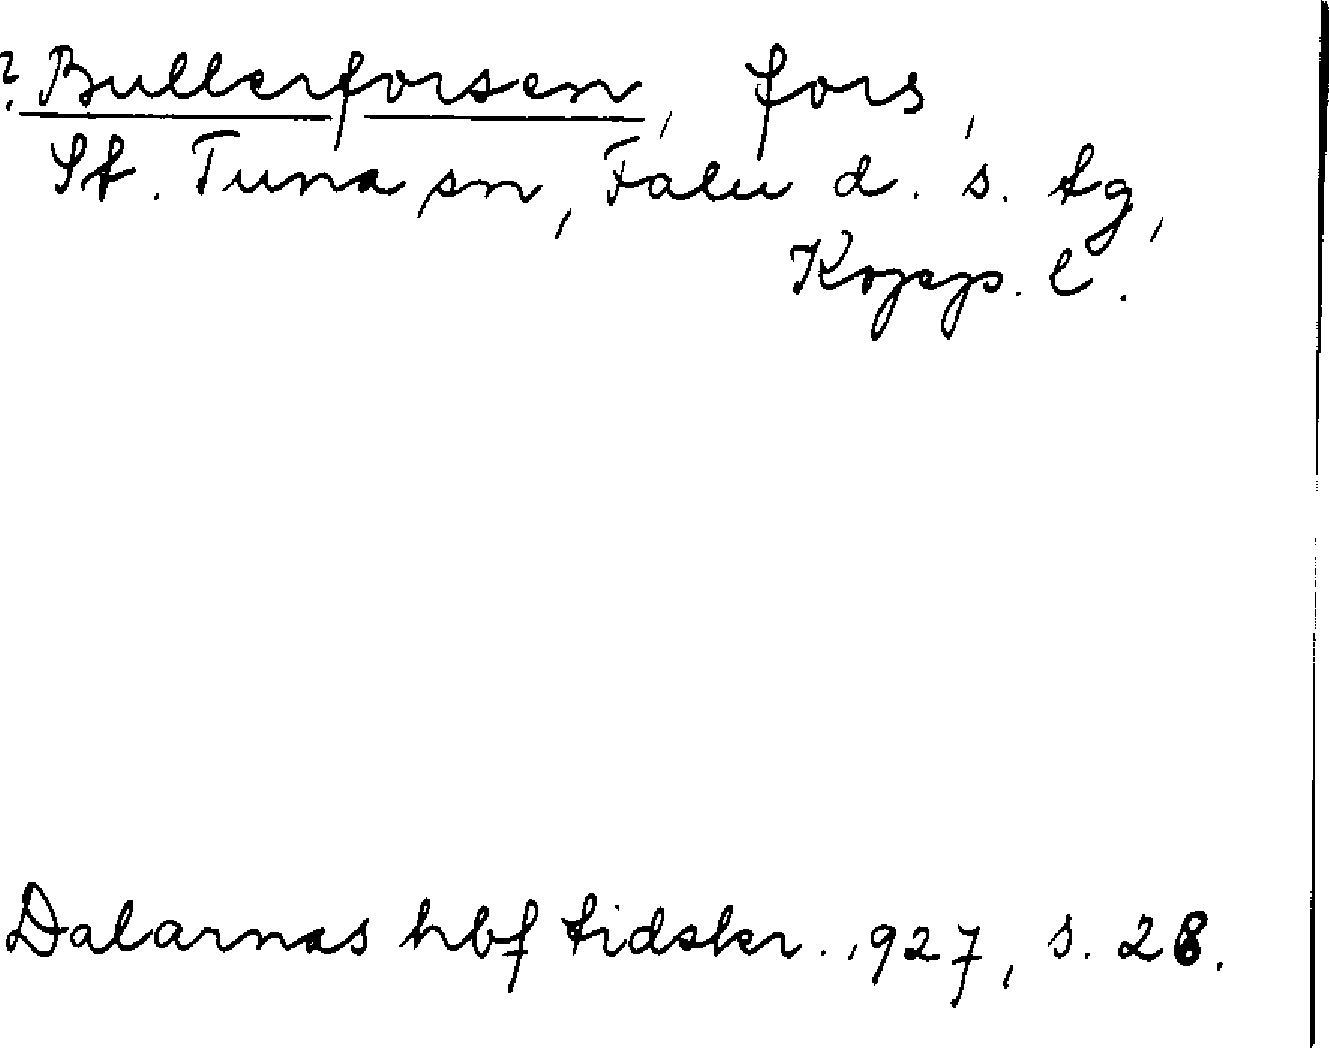 ? Bullerforsen, fors,
St. Tuna sn, Falu d. s. tg,
Kopp. l.
Dalarnas hbf tidskr. 1927, s. 28.